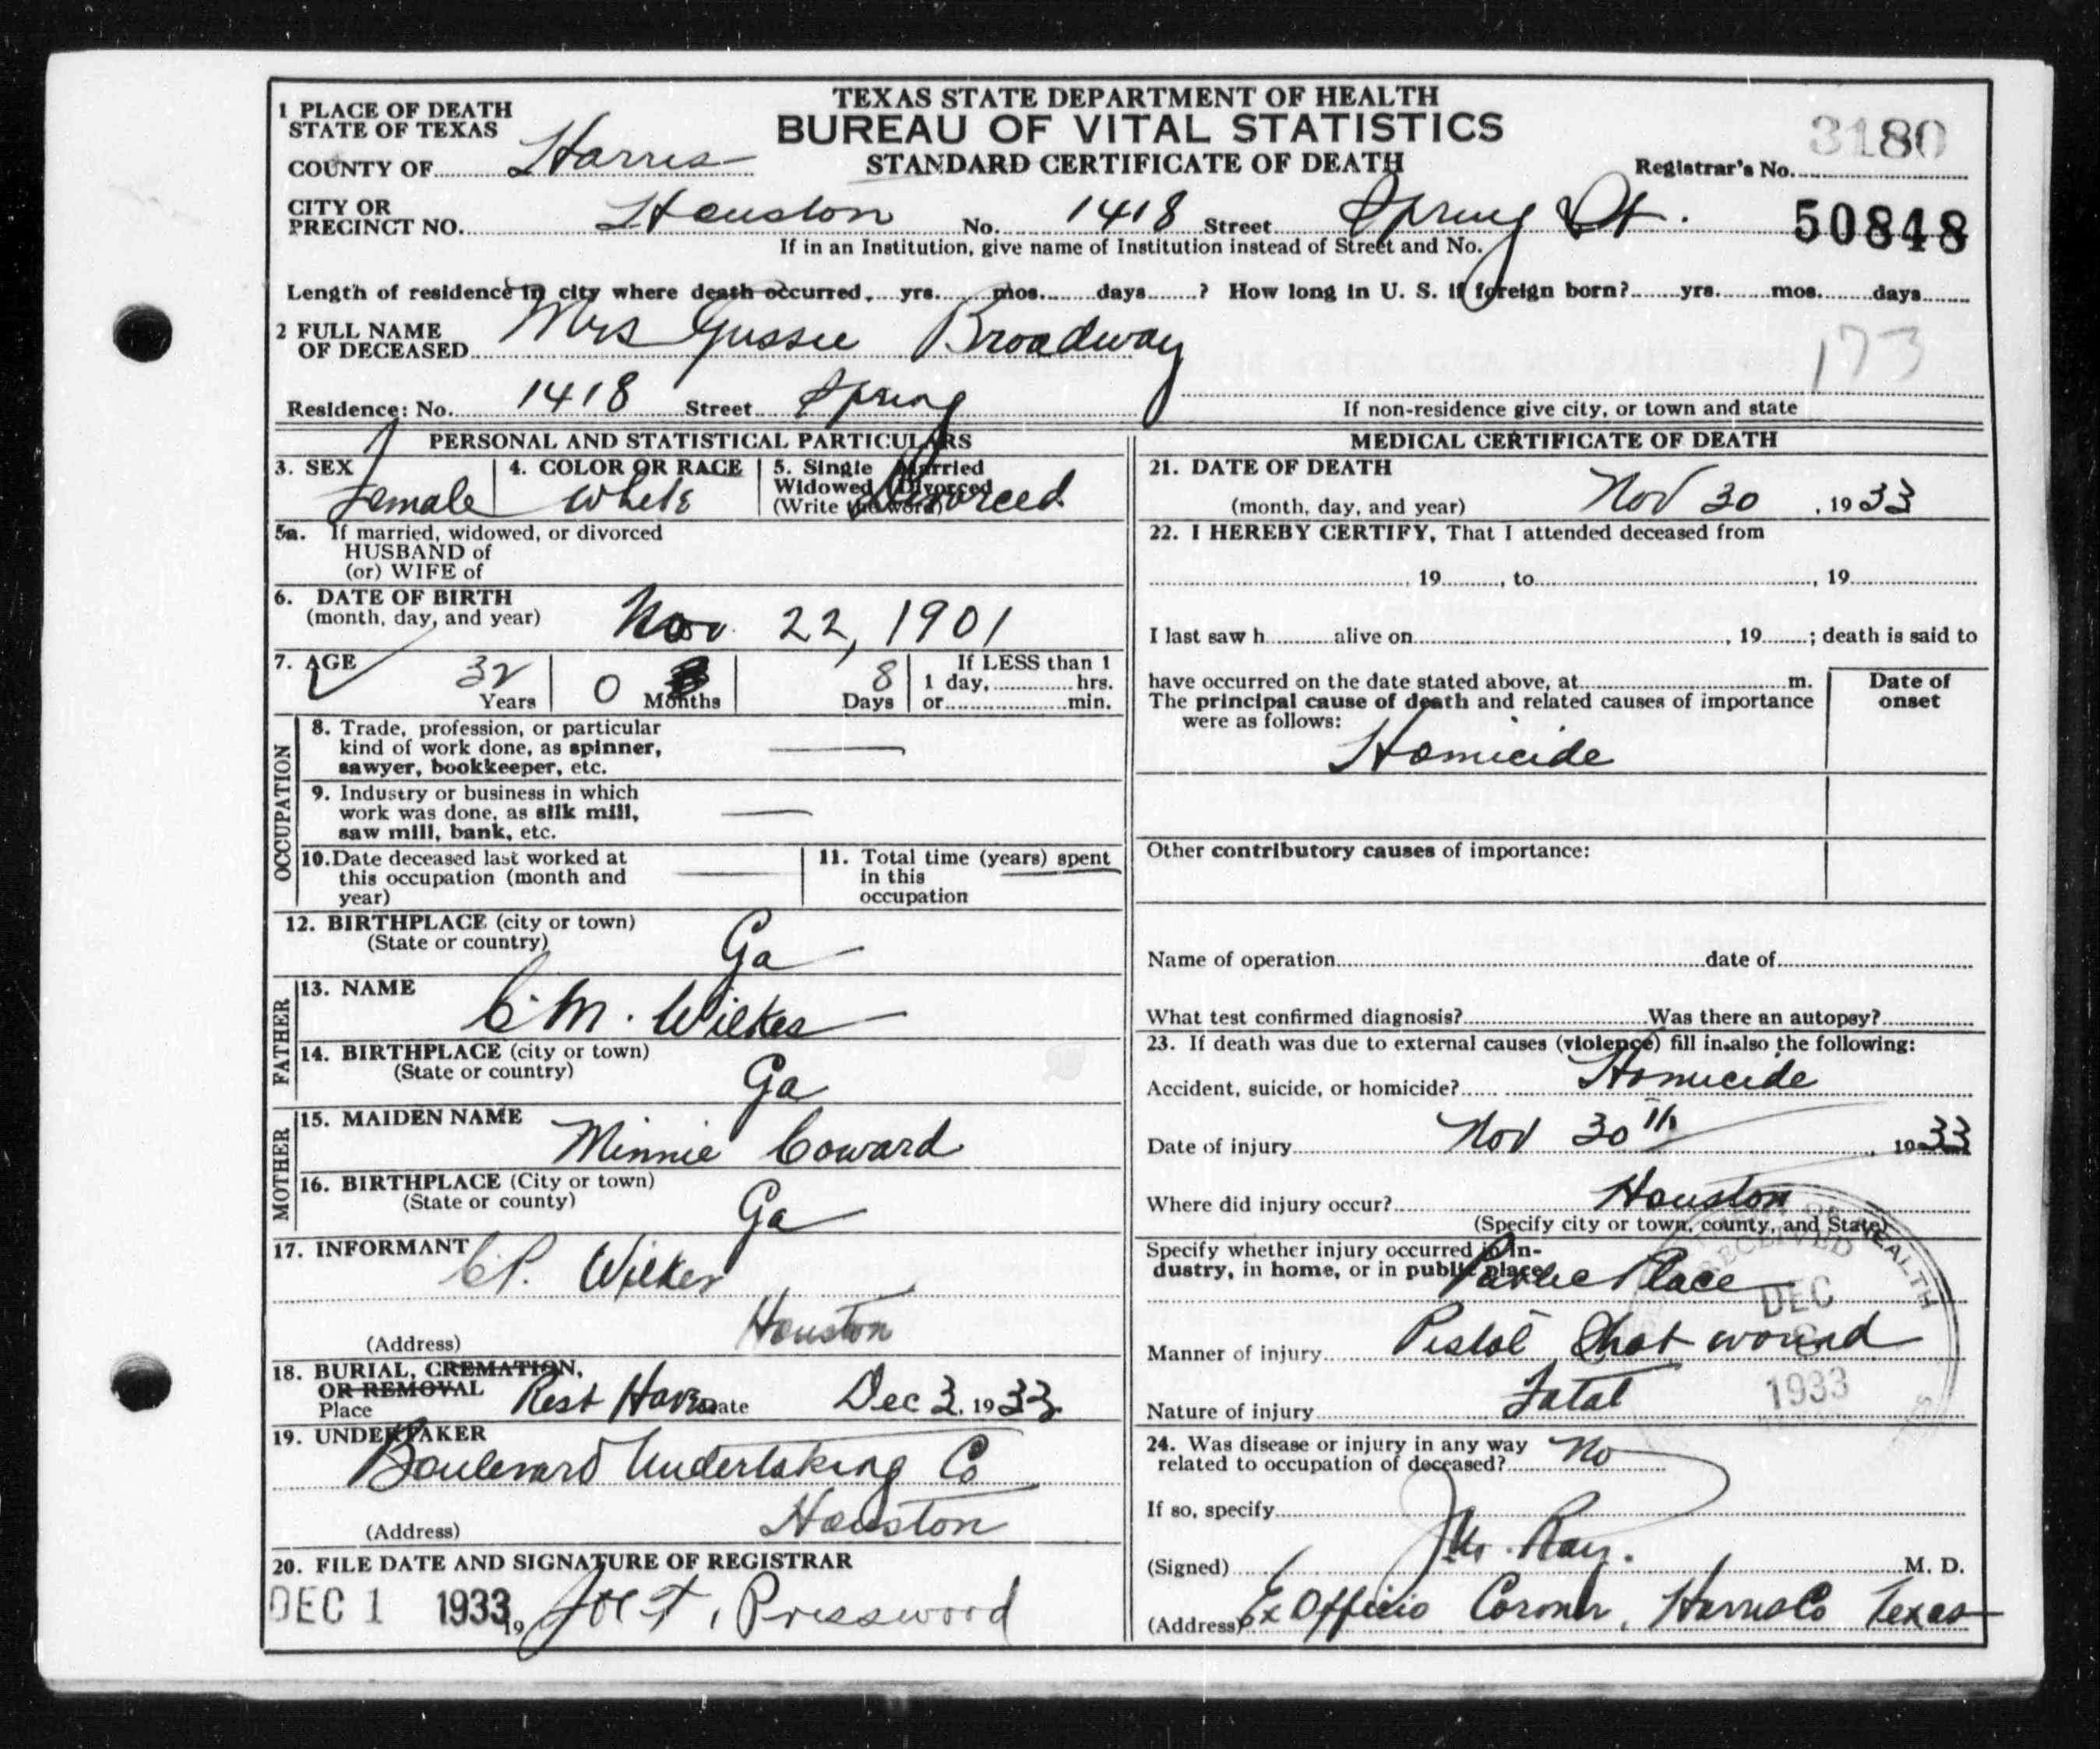 TEXAS STATE DEPARTMENT OF HEALTH
BUREAU OF VITAL STATISTICS
STANDARD CERTIFICATE OF DEATH
1 PLACE OF DEATH
STATE OF TEXAS
COUNTY OF Harris
Registrar's No. 3180
CITY OR
PRECINCT NO. Houston No. 1418 Street Spring St. 50848
If in an Institution, give name of Institution instead of Street and No.
Length of residence in city where death occurred, yrs. mos. days ? How long in U. S. if foreign born? yrs. mos. days
2 FULL NAME
OF DECEASED Mrs Gussie Broadway 173
Residence: No. 1418 Street Spring
If non-residence give city, or town and state
PERSONAL AND STATISTICAL PARTICULARS
3. SEX Female
4. COLOR OR RACE White
5. Single Married
Widowed Divorced
(Write the word) Divorced
5a. If married, widowed, or divorced
HUSBAND of
(or) WIFE of
6. DATE OF BIRTH
(month, day, and year) Nov. 22, 1901
7. AGE 32 Years 0 Months 8 Days
If LESS than 1
1 day, hrs.
or min.
OCCUPATION
8. Trade, profession, or particular
kind of work done, as spinner,
sawyer, bookkeeper, etc.
9. Industry or business in which
work was done, as silk mill,
saw mill, bank, etc.
10. Date deceased last worked at
this occupation (month and
year)
11. Total time (years) spent
in this
occupation
12. BIRTHPLACE (city or town)
(State or country) Ga
FATHER
13. NAME C.M. Wilkes
14. BIRTHPLACE (city or town)
(State or country) Ga
MOTHER
15. MAIDEN NAME Minnie Coward
16. BIRTHPLACE (City or town)
(State or county) Ga
17. INFORMANT C.P. Wilkes
(Address) Houston
18. BURIAL, CREMATION,
OR REMOVAL
Place Rest Haven Date Dec 3, 1933
19. UNDERTAKER
Boulevard Undertaking Co
(Address) Houston
20. FILE DATE AND SIGNATURE OF REGISTRAR
DEC 1 1933 19 Presswood
MEDICAL CERTIFICATE OF DEATH
21. DATE OF DEATH
(month, day, and year) Nov 30, 1933
22. I HEREBY CERTIFY, That I attended deceased from
, 19 , to , 19
I last saw h alive on , 19 ; death is said to
have occurred on the date stated above, at m.
The principal cause of death and related causes of importance
were as follows:
Date of
onset
Homicide
Other contributory causes of importance:
Name of operation date of
What test confirmed diagnosis? Was there an autopsy?
23. If death was due to external causes (violence) fill in also the following:
Accident, suicide, or homicide? Homicide
Date of injury Nov 30th, 1933
Where did injury occur? Houston
(Specify city or town, county, and State)
Specify whether injury occurred in in-
dustry, in home, or in public place Public Place
Manner of injury Pistol Shot wound
Nature of injury Fatal
RECEIVED
DEC
1933
HEALTH
24. Was disease or injury in any way
related to occupation of deceased? No
If so, specify
(Signed) Ray. M. D.
(Address) Ex Officio Coroner, Harris Co Texas